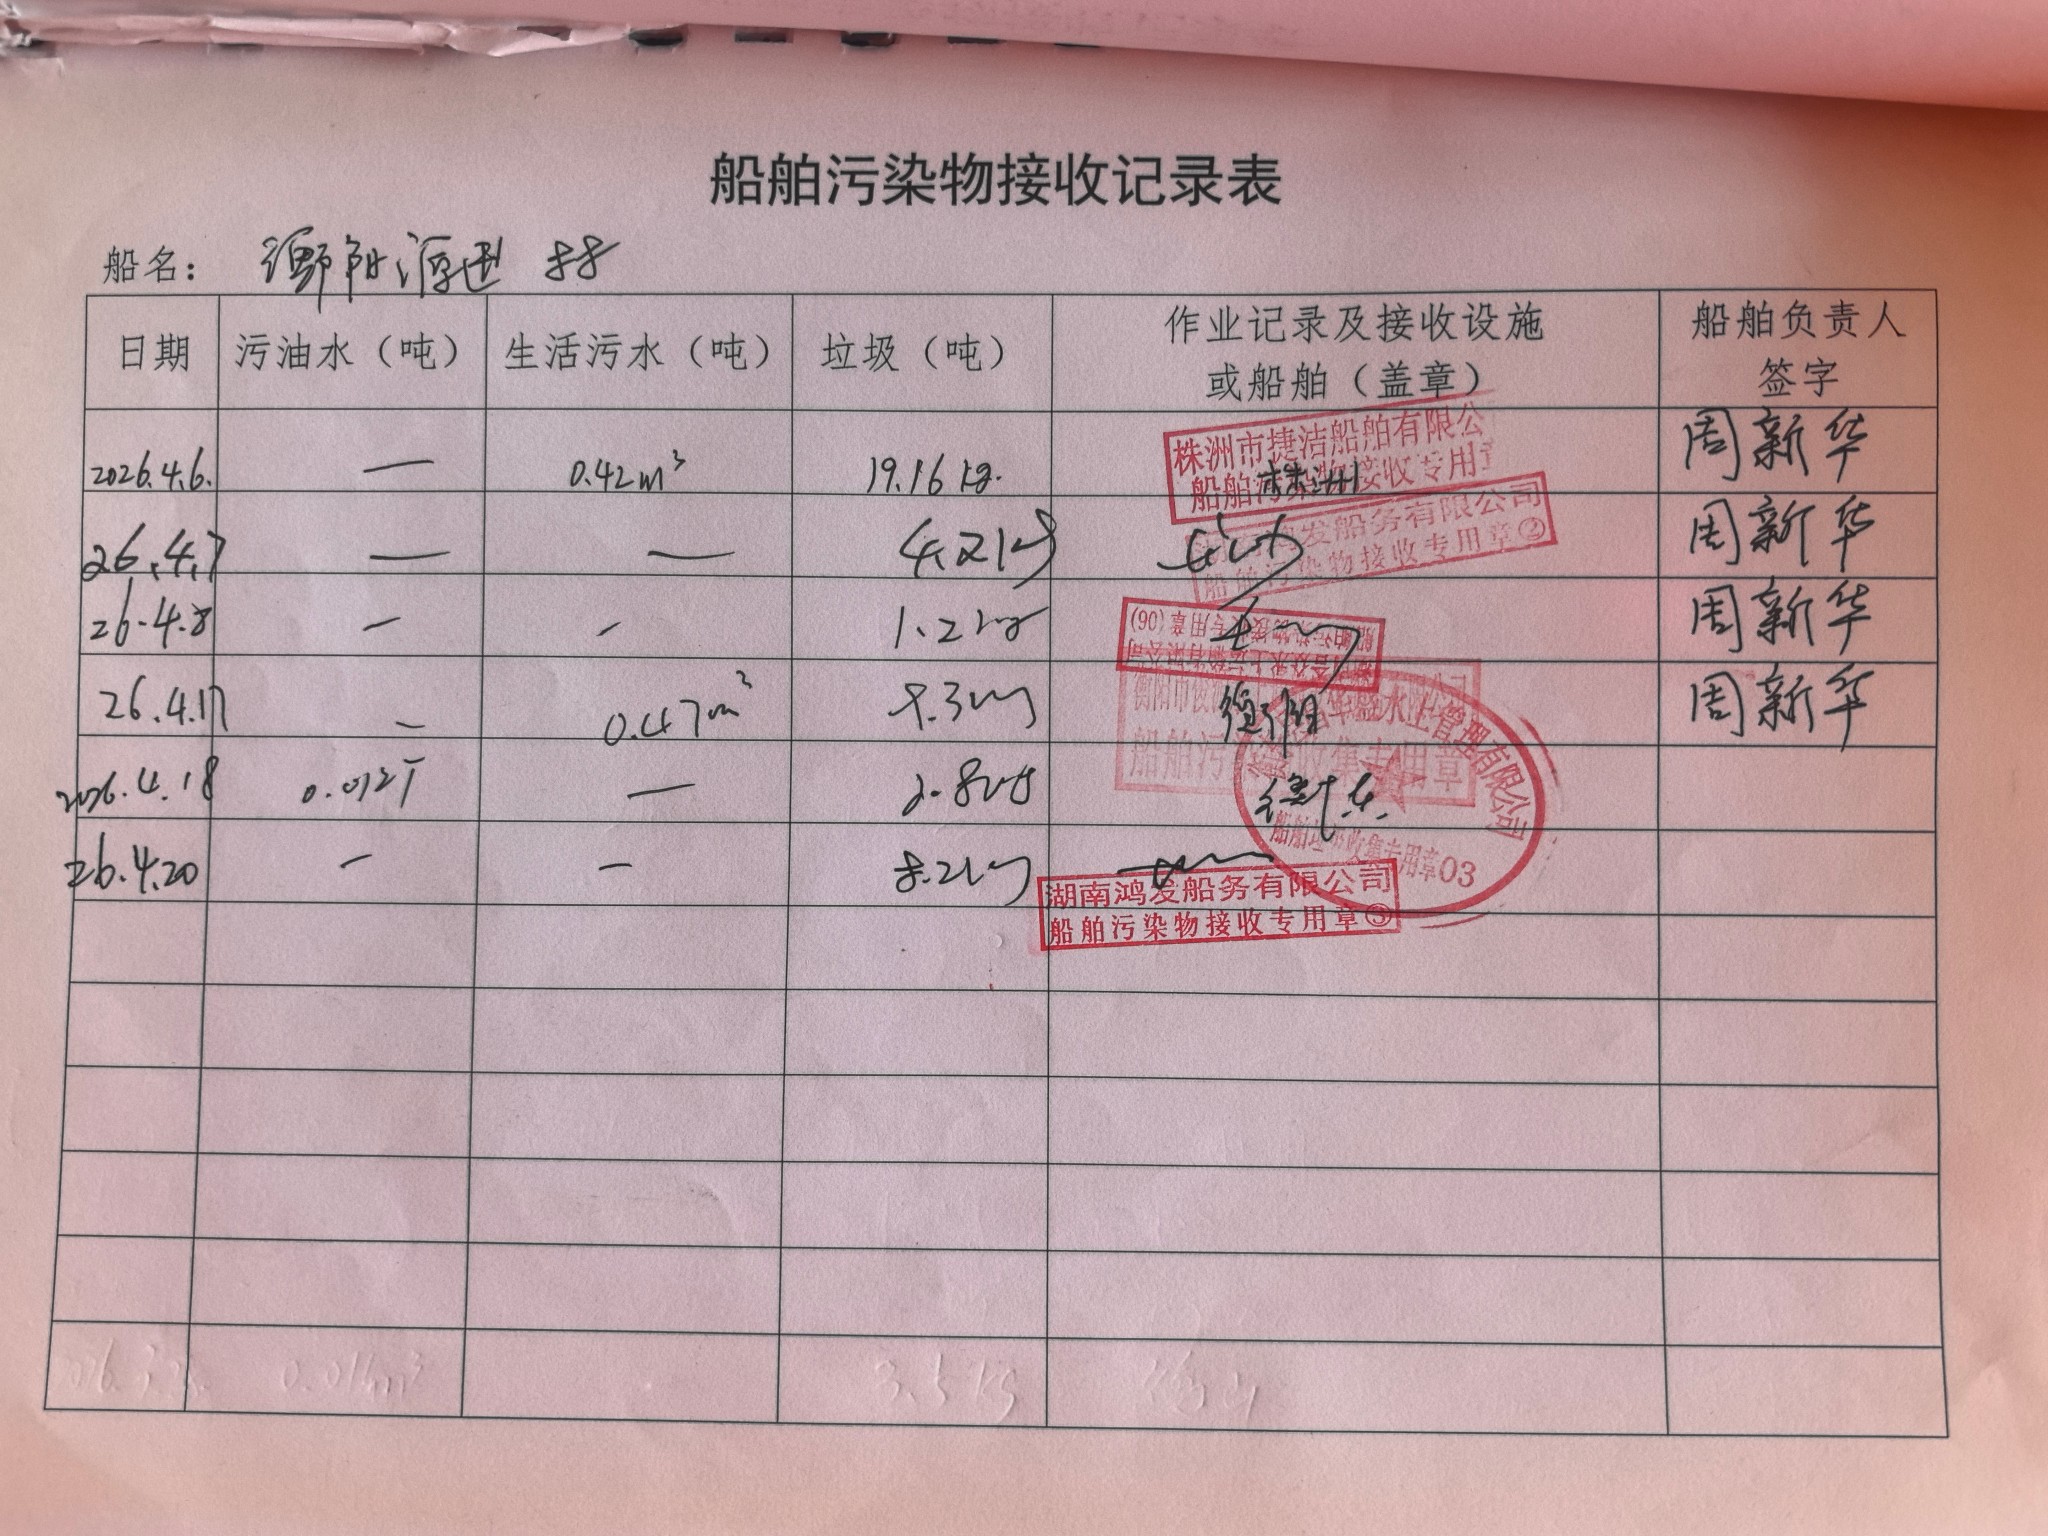 船舶污染物接收记录表
船名： 衡阳 88
日期 污油水（吨） 生活污水（吨） 垃圾（吨） 作业记录及接收设施或船舶（盖章） 船舶负责人签字
2026.4.6. — 0.42m³ 19.16 kg. 株洲 周新华
株洲市捷洁船舶有限公
船舶污染物接收专用章
26.4.7 — — 4.21kg 周新华
鸿发船务有限公司
船舶污染物接收专用章②
26.4.8 — — 1.21kg 周新华
船舶污染物接收专用章(06)
26.4.17 — 0.47m³ 8.3kg 衡阳 周新华
衡阳市
船舶污染物收集专用章
2026.4.18 0.012T — 2.8kg 衡东
水上管理有限公司
船舶垃圾收集专用章03
26.4.20 — — 8.21kg
湖南鸿发船务有限公司
船舶污染物接收专用章③